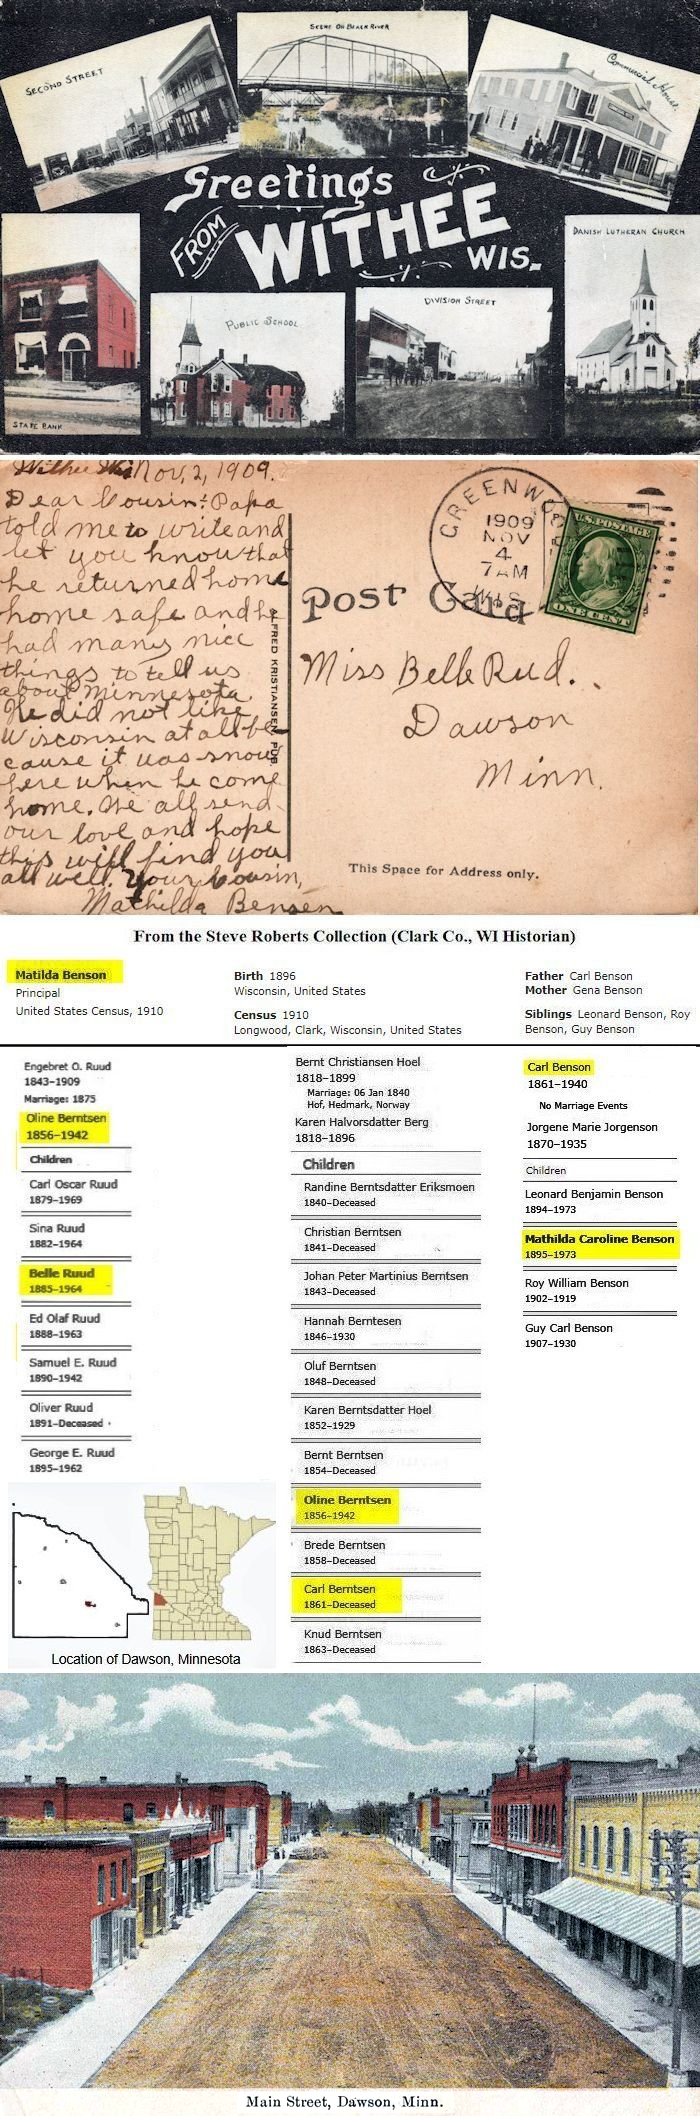 SECOND STREET
SCENE ON BLACK RIVER
Commercial House.
Greetings
FROM
WITHEE
WIS.
STATE BANK
PUBLIC SCHOOL
DIVISION STREET
DANISH LUTHERAN CHURCH
Withee Wis Nov, 2, 1909.
Dear Cousin: Papa
told me to write and
let you know that
he returned home
home safe and he
had many nice
things to tell us
about Minnesota
He did not like
Wisconsin at all be-
cause it was snow
here when he come
home. We all send
our love and hope
this will find you
all well. Your cousin,
Mathilda Bensen
ALFRED KRISTIANSEN, PUB.
GREENWO
1909
NOV
4
7 AM
WIS.
U.S. POSTAGE
ONE CENT
Post Card
Miss Belle Rud.
Dawson
Minn.
This Space for Address only.
From the Steve Roberts Collection (Clark Co., WI Historian)
Matilda Benson
Principal
United States Census, 1910
Birth 1896
Wisconsin, United States
Census 1910
Longwood, Clark, Wisconsin, United States
Father Carl Benson
Mother Gena Benson
Siblings Leonard Benson, Roy
Benson, Guy Benson
Engebret O. Ruud
1843–1909
Marriage: 1875
Oline Berntsen
1856–1942
Children
Carl Oscar Ruud
1879–1969
Sina Ruud
1882–1964
Belle Ruud
1885–1964
Ed Olaf Ruud
1888–1963
Samuel E. Ruud
1890–1942
Oliver Ruud
1891–Deceased
George E. Ruud
1895–1962
Bernt Christiansen Hoel
1818–1899
Marriage: 06 Jan 1840
Hof, Hedmark, Norway
Karen Halvorsdatter Berg
1818–1896
Children
Randine Berntsdatter Eriksmoen
1840–Deceased
Christian Berntsen
1841–Deceased
Johan Peter Martinius Berntsen
1843–Deceased
Hannah Berntesen
1846–1930
Oluf Berntsen
1848–Deceased
Karen Berntsdatter Hoel
1852–1929
Bernt Berntsen
1854–Deceased
Oline Berntsen
1856–1942
Brede Berntsen
1858–Deceased
Carl Berntsen
1861–Deceased
Knud Berntsen
1863–Deceased
Carl Benson
1861–1940
No Marriage Events
Jorgene Marie Jorgenson
1870–1935
Children
Leonard Benjamin Benson
1894–1973
Mathilda Caroline Benson
1895–1973
Roy William Benson
1902–1919
Guy Carl Benson
1907–1930
Location of Dawson, Minnesota
Main Street, Dawson, Minn.